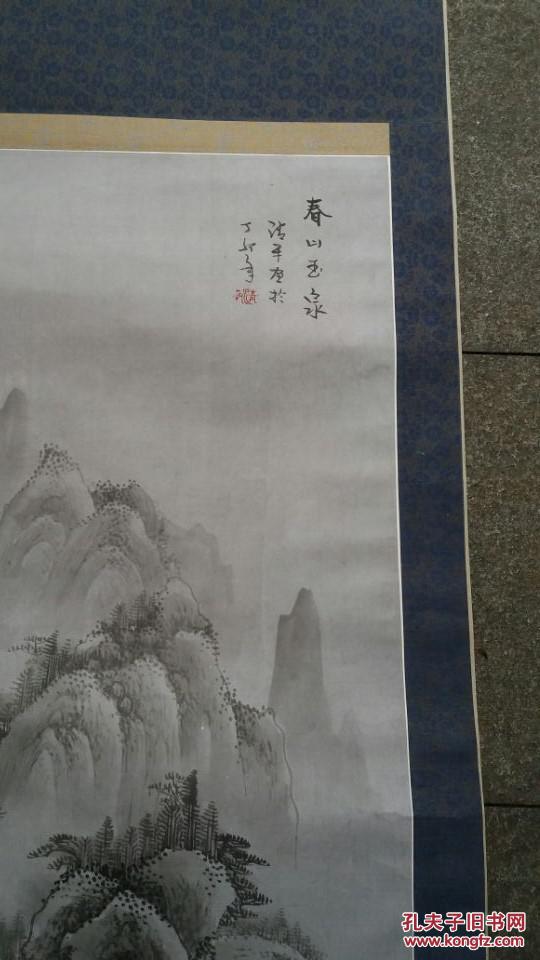 春山玉泉
清平画於
丁卯年
孔夫子旧书网
www.kongfz.com